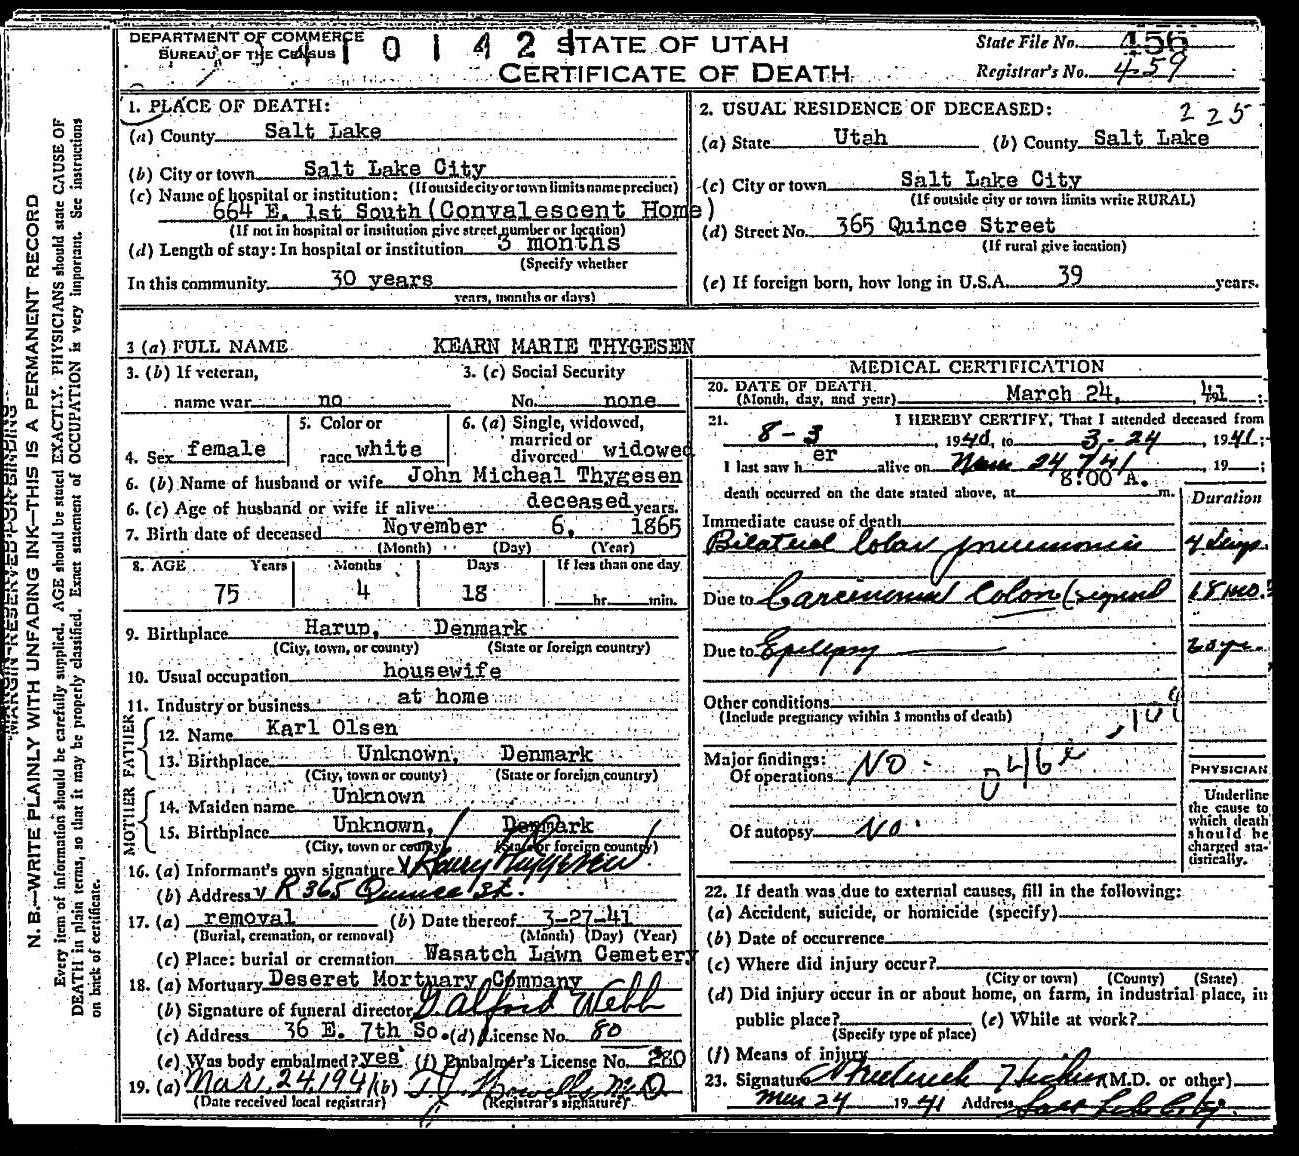 DEPARTMENT OF COMMERCE
BUREAU OF THE CENSUS
STATE OF UTAH
CERTIFICATE OF DEATH
State File No. 456
Registrar's No. 459
1. PLACE OF DEATH:
(a) County Salt Lake
(b) City or town Salt Lake City
(If outside city or town limits name precinct)
(c) Name of hospital or institution:
664 E. 1st South (Convalescent Home)
(If not in hospital or institution give street number or location)
(d) Length of stay: In hospital or institution 3 months
(Specify whether
In this community 30 years
years, months or days)
2. USUAL RESIDENCE OF DECEASED:
225
(a) State Utah (b) County Salt Lake
(c) City or town Salt Lake City
(If outside city or town limits write RURAL)
(d) Street No. 365 Quince Street
(If rural give location)
(e) If foreign born, how long in U.S.A. 39 years.
3 (a) FULL NAME KEARN MARIE THYGESEN
3. (b) If veteran,
name war no
3. (c) Social Security
No. none
4. Sex female
5. Color or
race white
6. (a) Single, widowed,
married or
divorced widowed
6. (b) Name of husband or wife John Micheal Thygesen
6. (c) Age of husband or wife if alive deceased years.
7. Birth date of deceased November 6, 1865
(Month) (Day) (Year)
8. AGE Years Months Days If less than one day
75 4 18 hr. min.
9. Birthplace Harup, Denmark
(City, town, or county) (State or foreign country)
10. Usual occupation housewife
11. Industry or business at home
FATHER
12. Name Karl Olsen
13. Birthplace Unknown, Denmark
(City, town or county) (State or foreign country)
MOTHER
14. Maiden name Unknown
15. Birthplace Unknown, Denmark
(City, town or county) (State or foreign country)
16. (a) Informant's own signature Harry Thygesen
(b) Address R 365 Quince St.
17. (a) removal (b) Date thereof 3-27-41
(Burial, cremation, or removal) (Month) (Day) (Year)
(c) Place: burial or cremation Wasatch Lawn Cemetery
18. (a) Mortuary Deseret Mortuary Company
(b) Signature of funeral director G. Alford Webb
(c) Address 36 E. 7th So. (d) License No. 80
(e) Was body embalmed? yes (f) Embalmer's License No. 280
19. (a) Mar. 24, 1941 (b)
(Date received local registrar) (Registrar's signature)
MEDICAL CERTIFICATION
20. DATE OF DEATH March 24, 1941;
(Month, day, and year)
21. I HEREBY CERTIFY, That I attended deceased from
8-3, 1940, to 3-24, 1941;
I last saw her alive on 24 41, 19 ;
death occurred on the date stated above, at 8:00 A. m.
Duration
Immediate cause of death
Bilateral lobar pneumonia 4 days
Due to Carcinoma Colon (sigmoid 18 mo.
Due to Epilepsy
Other conditions
(Include pregnancy within 3 months of death)
Major findings:
Of operations No. 046e
Of autopsy No.
PHYSICIAN
Underline
the cause to
which death
should be
charged sta-
tistically.
22. If death was due to external causes, fill in the following:
(a) Accident, suicide, or homicide (specify)
(b) Date of occurrence
(c) Where did injury occur?
(City or town) (County) (State)
(d) Did injury occur in or about home, on farm, in industrial place, in
public place? (e) While at work?
(Specify type of place)
(f) Means of injury
23. Signature Frederick (M.D. or other)
24 1941 Address Salt Lake City.
MARGIN RESERVED FOR BINDING
N. B.—WRITE PLAINLY WITH UNFADING INK—THIS IS A PERMANENT RECORD
Every item of information should be carefully supplied. AGE should be stated EXACTLY. PHYSICIANS should state CAUSE OF
DEATH in plain terms, so that it may be properly classified. Exact statement of OCCUPATION is very important. See instructions
on back of certificate.